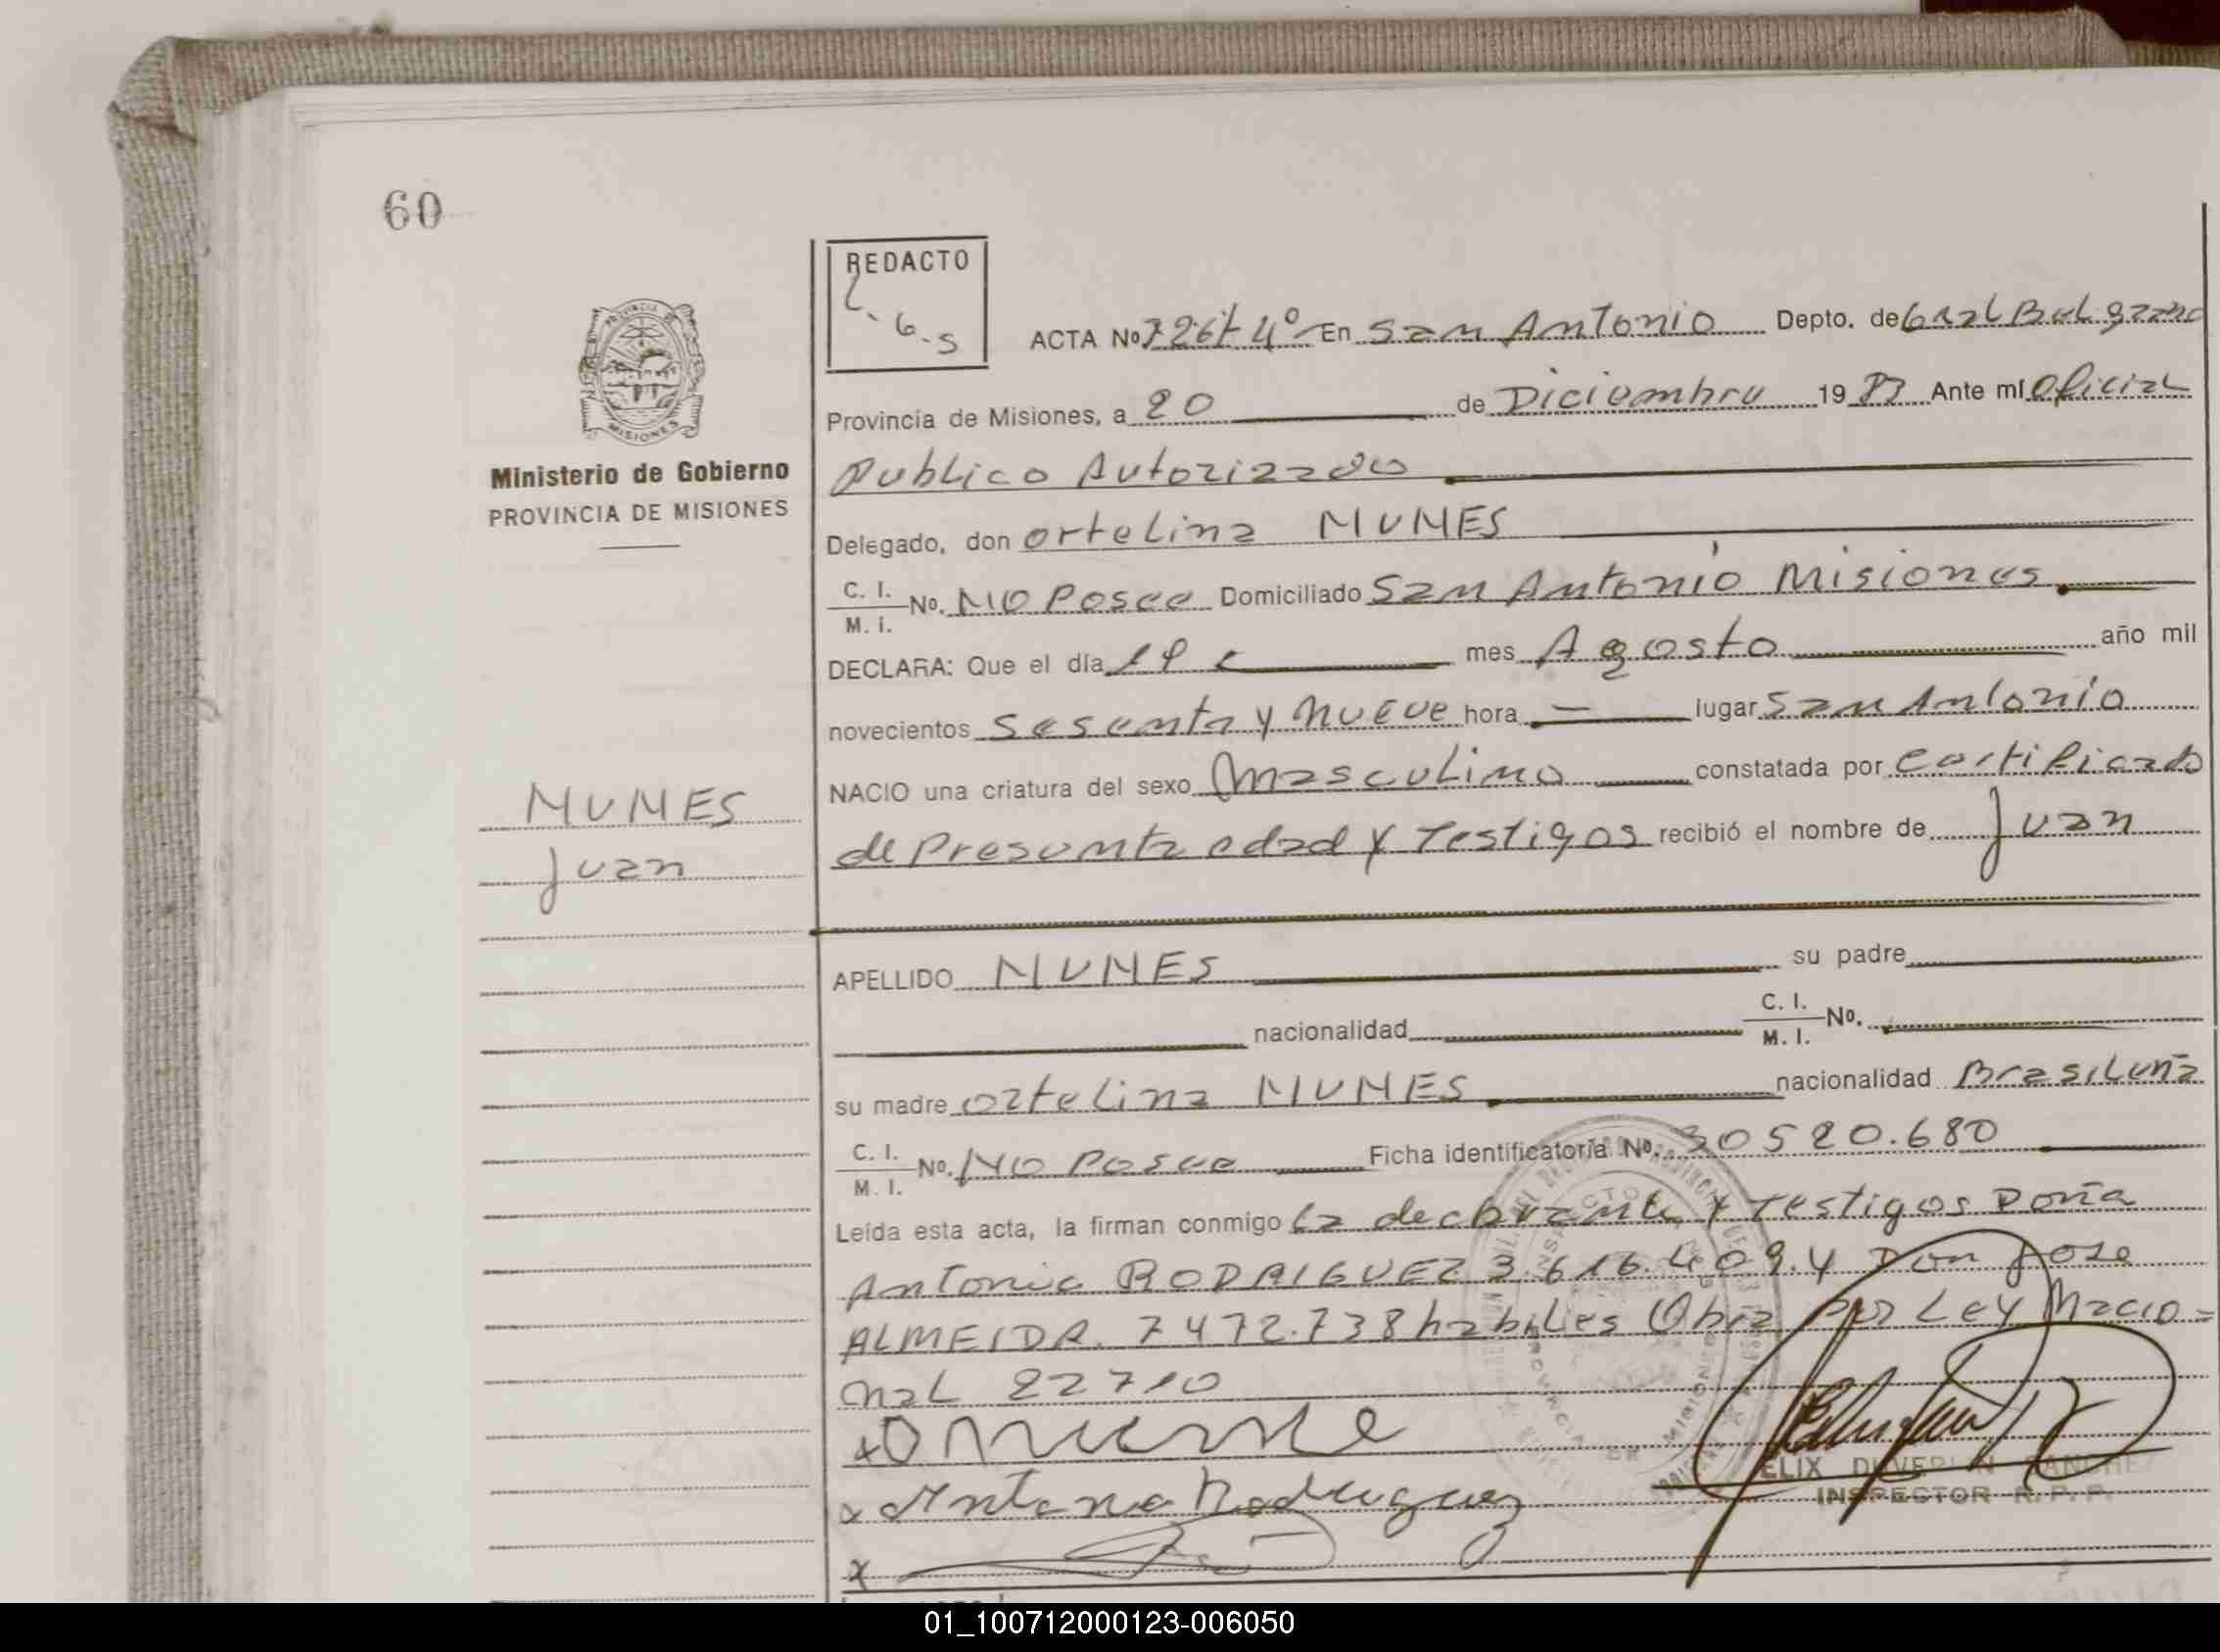 60
REDACTO
L.G.S
ACTA Nº 726 T 4º En San Antonio Depto. de Gral Belgrano
Provincia de Misiones, a 20 de Diciembre 1983 Ante mí Oficial
Publico Autorizado
Ministerio de Gobierno
PROVINCIA DE MISIONES
Delegado, don Ortelina NUNES
C. I.
M. I. No. NO Posee Domiciliado San Antonio Misiones
DECLARA: Que el día 19 mes Agosto año mil
novecientos sesenta y nueve hora — lugar San Antonio
NACIO una criatura del sexo Masculino constatada por certificado
de Presunta edad y Testigos recibió el nombre de Juan
NUNES
Juan
APELLIDO NUNES su padre
nacionalidad C. I.
M. I. No.
su madre Ortelina NUNES nacionalidad Brasileña
C. I.
M. I. No. NO Posee Ficha identificatoria No. 30520.680
Leída esta acta, la firman conmigo la declarante y Testigos Doña
Antonia RODRIGUEZ 3.616.409.Y Don Jose
ALMEIDA. 7472.738 habiles Obra por Ley Nacio=
nal 22710
x O nune
x Antonia Rodriguez
x
FELIX SANCHEZ
INSPECTOR R. P. P.
01_100712000123-006050